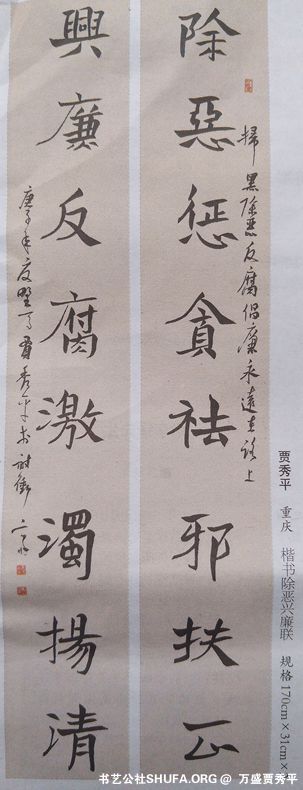 除惡惩貪祛邪扶正
掃黑除恶反腐倡廉永遠在路上
興廉反腐激濁揚清
庚子年
秀平书
贾秀平 重庆 楷书除恶兴廉联 规格170cm×31cm×
书艺公社SHUFA.ORG @ 万盛贾秀平